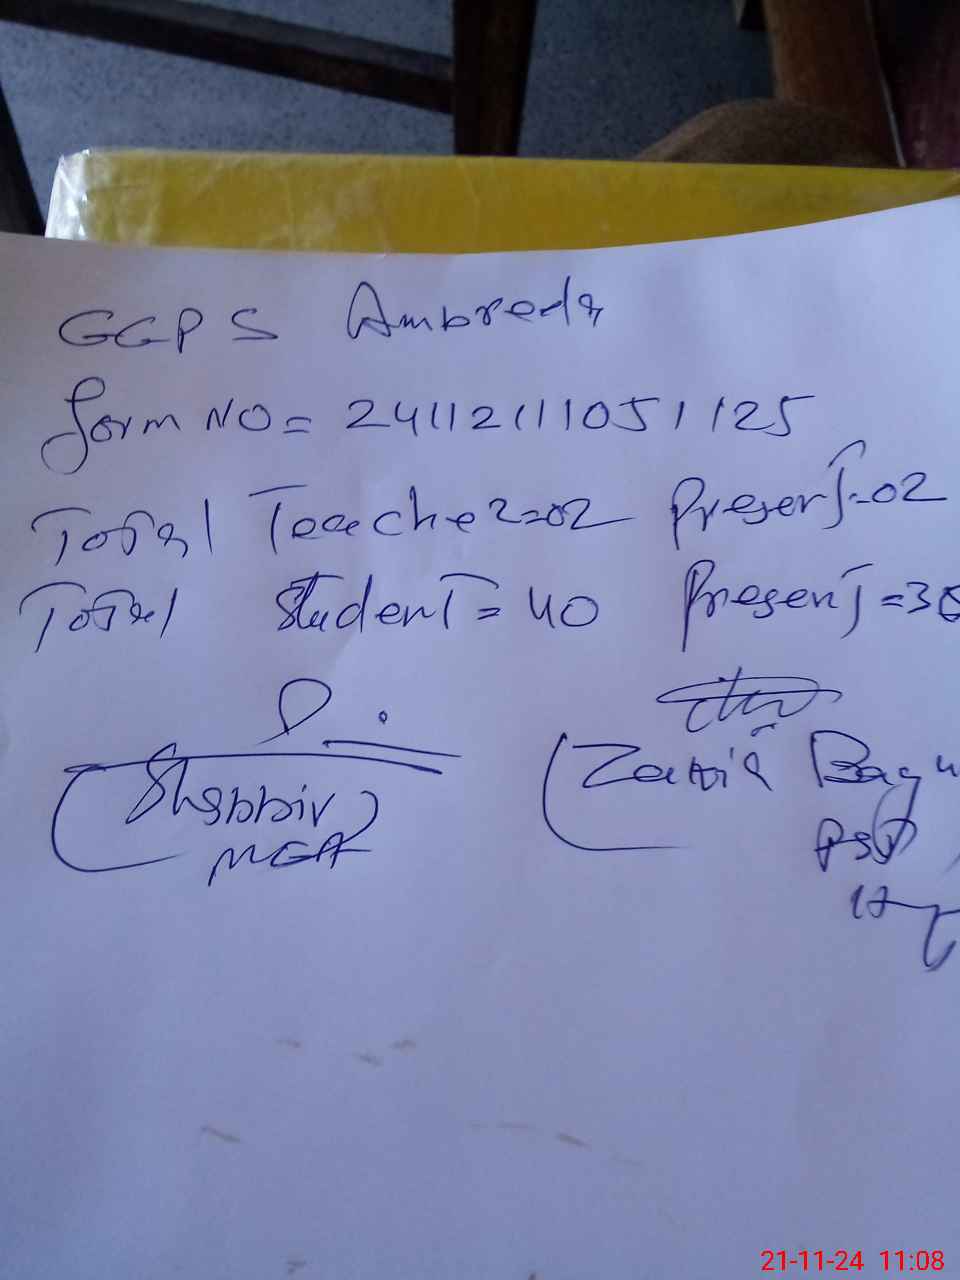 GGPS Ambreda
Form NO = 24112111051125
Total Teacher = 02 Present = 02
Total Student = 40 Present = 38
(Shabbir) (Zakia
MEA PST
21-11-24 11:08